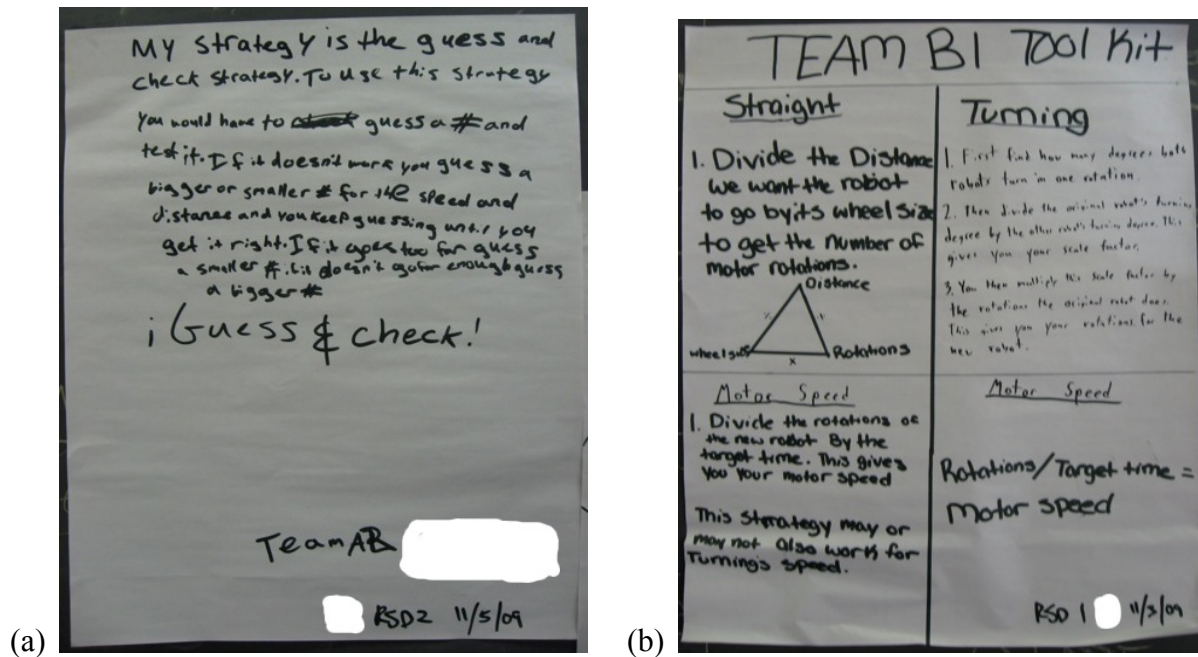 My strategy is the guess and
check strategy. To use this strategy
You would have to guess a # and
test it. If it doesn't work you guess a
bigger or smaller # for the speed and
distance and you keep guessing until you
get it right. If it goes too far guess
a smaller #. If it doesn't go far enough guess
a bigger #
¡ Guess & check!
Team AB
RSD2 11/5/09
(a)
TEAM B1 Tool Kit
Straight
1. Divide the Distance
we want the robot
to go by its wheel size
to get the number of
motor rotations.
Distance
wheel size
x
Rotations
Motor Speed
1. Divide the rotations of
the new robot By the
target time. This gives
you your motor speed
This Strategy may or
may not also work for
Turning's speed.
Turning
1. First find how many degrees both
robots turn in one rotation.
2. Then divide the original robot's turning
degree by the other robot's turning degree. This
gives you your scale factor.
3. You then multiply this scale factor by
the rotations the original robot does.
This gives you your rotations for the
new robot.
Motor Speed
Rotations/Target time =
Motor speed
RSD 1 11/5/09
(b)